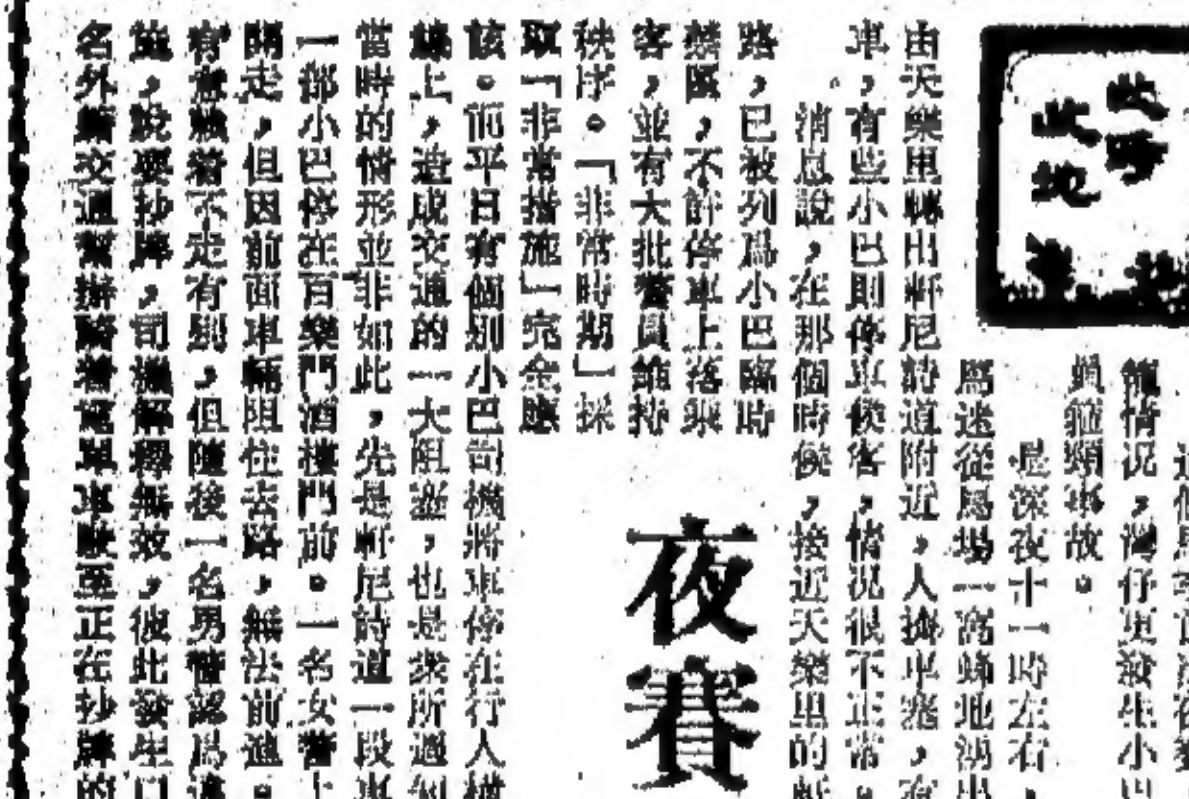 此時
此地
夜賽
籠情况，灣仔更發生小巴
事故。
是深夜十一時左右，
馬迷從馬場一窩蜂地湧出
由天樂里轉出軒尼詩道附近，人擠車塞，有
車，有些小巴則停車候客，情况很不正常。
消息說，在那個時候，接近天樂里的軒
路，已被列爲小巴臨時
禁區，不許停車上落乘
客，並有大批警員維持
秩序。「非常時期」採
取「非常措施」完全應
該。而平日有個別小巴司機將車停在行人橫
綫上，造成交通的一大阻塞，也是衆所週知
當時的情形並非如此，先是軒尼詩道一段車
一部小巴停在百樂門酒樓門前。一名女警上
開走，但因前面車輛阻住去路，無法前進。
有意賴着不走有別，但隨後一名男警認爲違
，說要抄牌，司機解釋無效，彼此發生口
名外籍交通警揸騎着電單車駛至正在抄牌的